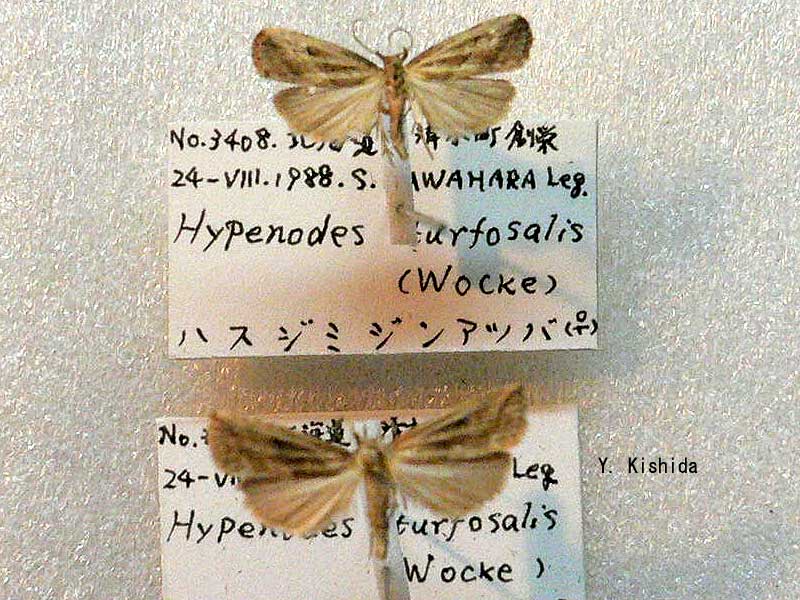 No.3408. 清水町創栄
24-VIII.1988.S. AWAHARA Leg.
Hypenodes turfosalis
(Wocke)
ハスジミジンアツバ(♀)
No.
24-VII Leg
Hypenodes turfosalis
Wocke)
Y. Kishida